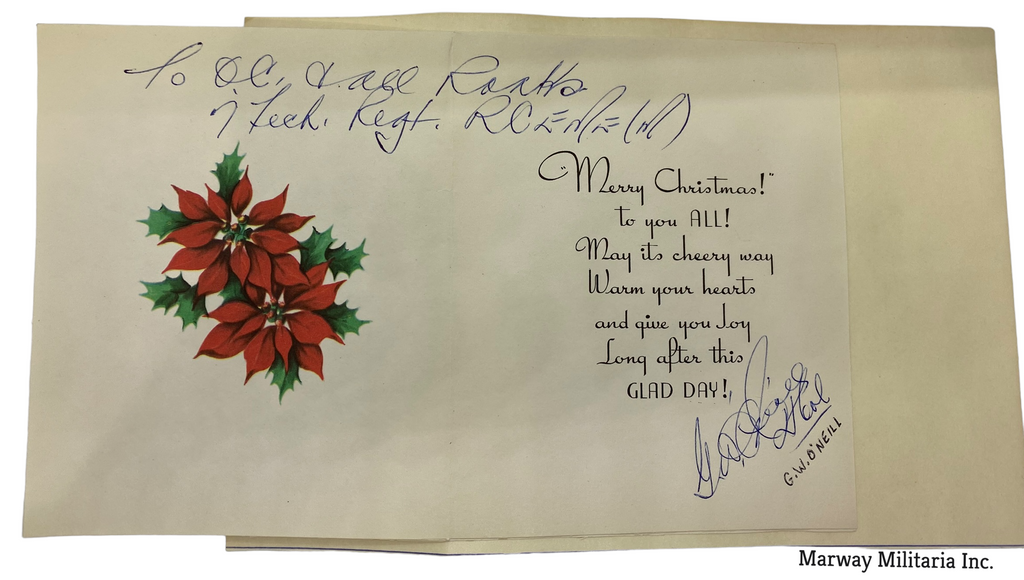 To O.C. & all Ranks
7 Tech. Regt. RCEME (M)
"Merry Christmas!"
to you ALL!
May its cheery way
Warm your hearts
and give you Joy
Long after this
GLAD DAY!
G.W. O'Neill
G.W. O'NEILL
Marway Militaria Inc.